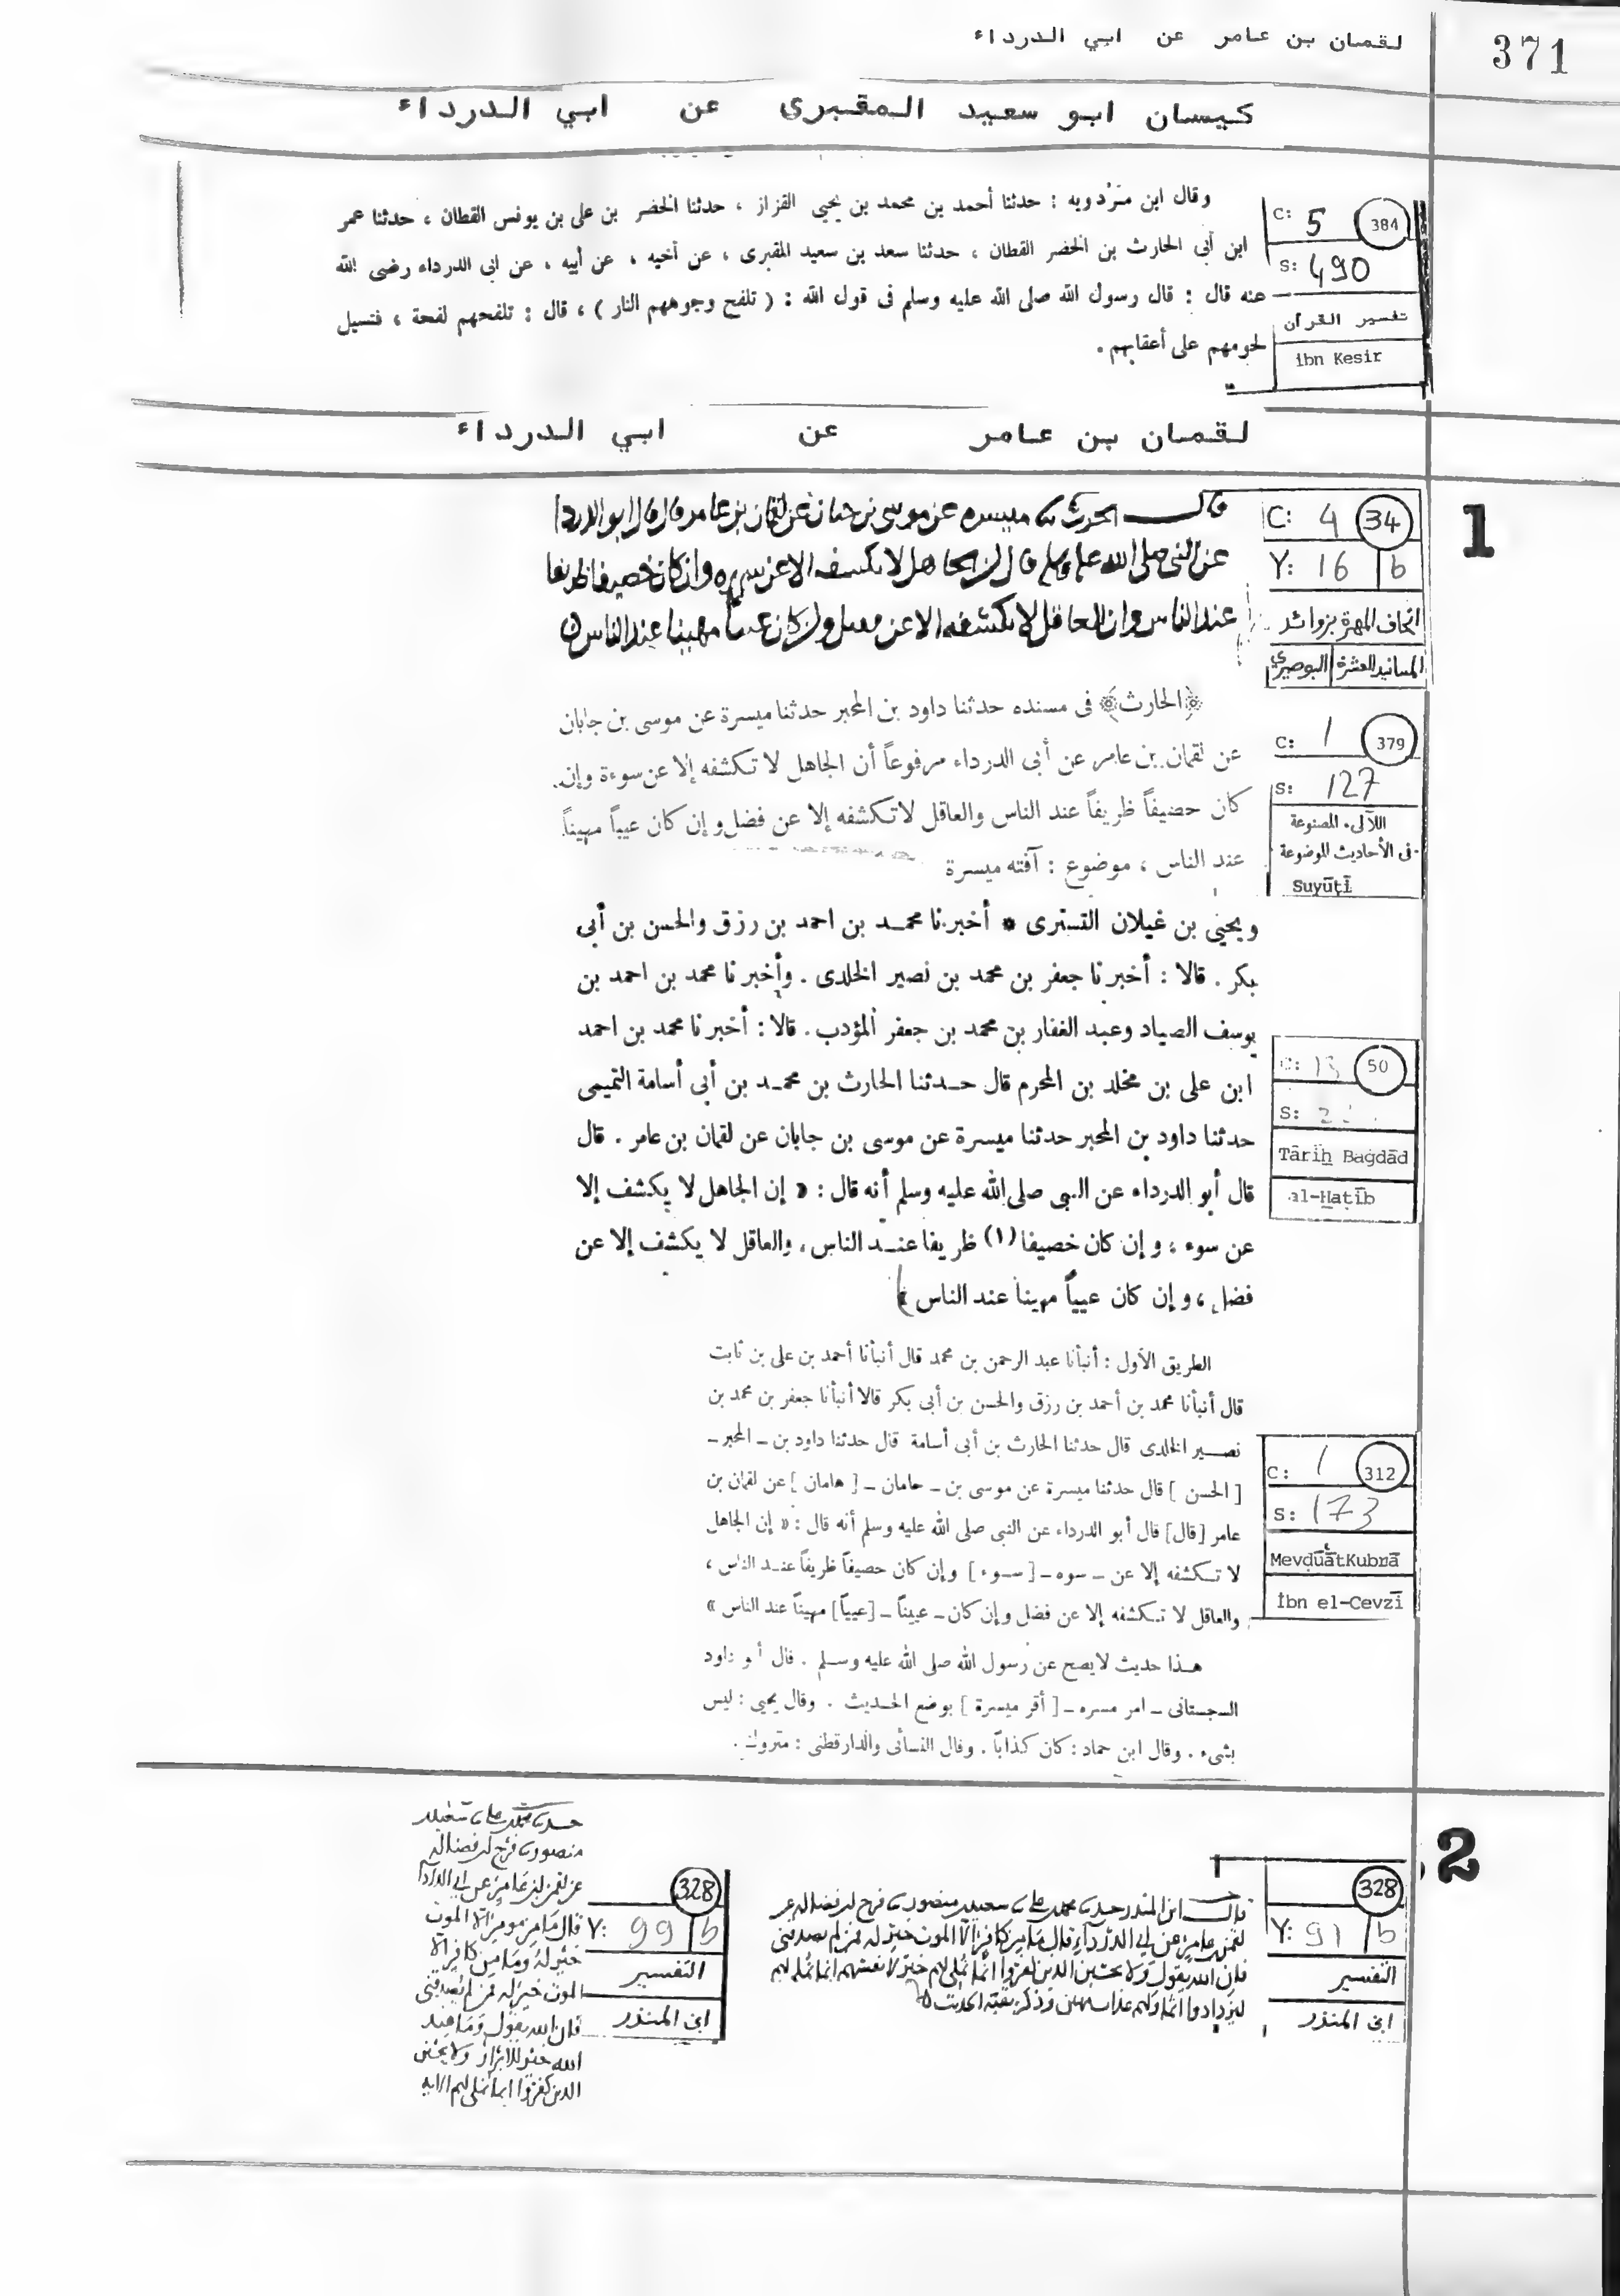 لقمان بن عامر عن ابي الدرداء
371
كيسان ابو سعيد المقبرى عن ابي الدرداء
وقال ابن مَرْدويه : حدثنا أحمد بن محمد بن يحيى القزاز ، حدثنا الخضر بن على بن يونس القطان ، حدثنا عمر
ابن أبى الحارث بن الخضر القطان ، حدثنا سعد بن سعيد المقبرى ، عن أخيه ، عن أبيه ، عن ابى الدرداء رضى الله
عنه قال : قال رسول الله صلى الله عليه وسلم فى قول الله : ( تلفح وجوههم النار ) ، قال : تلفحهم لفحة ، فتسيل
لحومهم على أعقابهم .
C: 5 384
S: 490
تفسير القرآن
ibn Kesir
لقمان بن عامر عن ابي الدرداء
1
قال الحرث ميسره عن موسى بن جابان عن لقمان بن عامر قال قال ابو الدردا
عن النبى صلى الله عليه وسلم قال ان الجاهل لا تكشفه الا عن سوءه وان كان حصيفا ظريفا
عند الناس وان العاقل لا تكشفه الا عن فضل وان كان عييا مهينا عند الناس
C: 4 34
Y: 16 b
اتحاف المهرة بزوائد
المسانيد العشرة البوصيري
﴿الحارث﴾ فى مسنده حدثنا داود بن المحبر حدثنا ميسرة عن موسى بن جابان
عن لقمان بن عامر عن أبى الدرداء مرفوعاً أن الجاهل لا تكشفه إلا عن سوءة وإن
كان حضيفاً ظريفاً عند الناس والعاقل لاتكشفه إلا عن فضل و إن كان عيباً مهيناً
عند الناس ، موضوع : آفته ميسرة
C: 1 379
S: 127
اللآلى المصنوعة
فى الأحاديث الموضوعة
Suyūṭī
ويحيى بن غيلان التسترى * أخبرنا محمد بن احمد بن رزق والحسن بن أبى
بكر . قالا : أخبرنا جعفر بن محمد بن نصير الخلدى . وأخبرنا محمد بن احمد بن
يوسف الصياد وعبد الغفار بن محمد بن جعفر المؤدب . قالا : أخبرنا محمد بن احمد
ابن على بن مخلد بن المحرم قال حدثنا الحارث بن محمد بن أبى أسامة التميمى
حدثنا داود بن المحبر حدثنا ميسرة عن موسى بن جابان عن لقمان بن عامر . قال
قال أبو الدرداء عن النبى صلى الله عليه وسلم أنه قال : « إن الجاهل لا يكشف إلا
عن سوء ، و إن كان خصيفا (١) ظريفا عند الناس ، والعاقل لا يكشف إلا عن
فضل ، و إن كان عيياً مهينا عند الناس »
C: 13 50
S:
Tārīḫ Baġdād
al-Ḫaṭīb
الطريق الأول : أنبأنا عبد الرحمن بن محمد قال أنبأنا أحمد بن على بن ثابت
قال أنبأنا محمد بن أحمد بن رزق والحسن بن أبى بكر قالا أنبأنا جعفر بن محمد بن
نصير الخلدى قال حدثنا الحارث بن أبى أسامة قال حدثنا داود بن ـ المحبر ـ
[ الحسن ] قال حدثنا ميسرة عن موسى بن ـ حامان ـ [ هامان ] عن لقمان بن
عامر [قال] قال أبو الدرداء عن النبى صلى الله عليه وسلم أنه قال : « إن الجاهل
لا تكشفه إلا عن ـ سوه ـ [ سوء ] وإن كان حصيفاً ظريفاً عند الناس ،
والعاقل لا تكشفه إلا عن فضل وإن كان ـ عيناً ـ [عيياً] مهيناً عند الناس »
هذا حديث لايصح عن رسول الله صلى الله عليه وسلم . قال أبو داود
السجستانى ـ امر مسره ـ [ أقر ميسرة ] بوضع الحديث . وقال يحيى : ليس
بشىء . وقال ابن حماد : كان كذاباً . وقال النسأئى والدارقطنى : متروك .
C: 1 312
S: 173
MevḍūʿātKubrā
İbn el-Cevzī
2
قال ابن المنذر حدثنا محمد بن على سعيد بن منصور فرج بن فضاله عن
لقمن بن عامر عن ابي الدرداء قال ما من كافر الا الموت خير له فمن لم يصدقنى
فان الله يقول ولا يحسبن الذين كفروا انما نملى لهم خير لانفسهم انما نملى لهم
ليزدادوا اثما ولهم عذاب مهين وذكر بقية الحديث
328
Y: 91 b
التفسير
ابن المنذر
حدثنا محمد بن على سعيد
منصور فرج بن فضاله
عن لقمن بن عامر عن ابي الدردا
قال ما من مومن الا الموت
خير له وما من كافر الا
الموت خير له فمن لم يصدقنى
فان الله يقول وما عند
الله خير للابرار ولا يحسبن
الذين كفروا انما نملى لهم الايه
328
Y: 99 b
التفسير
ابن المنذر